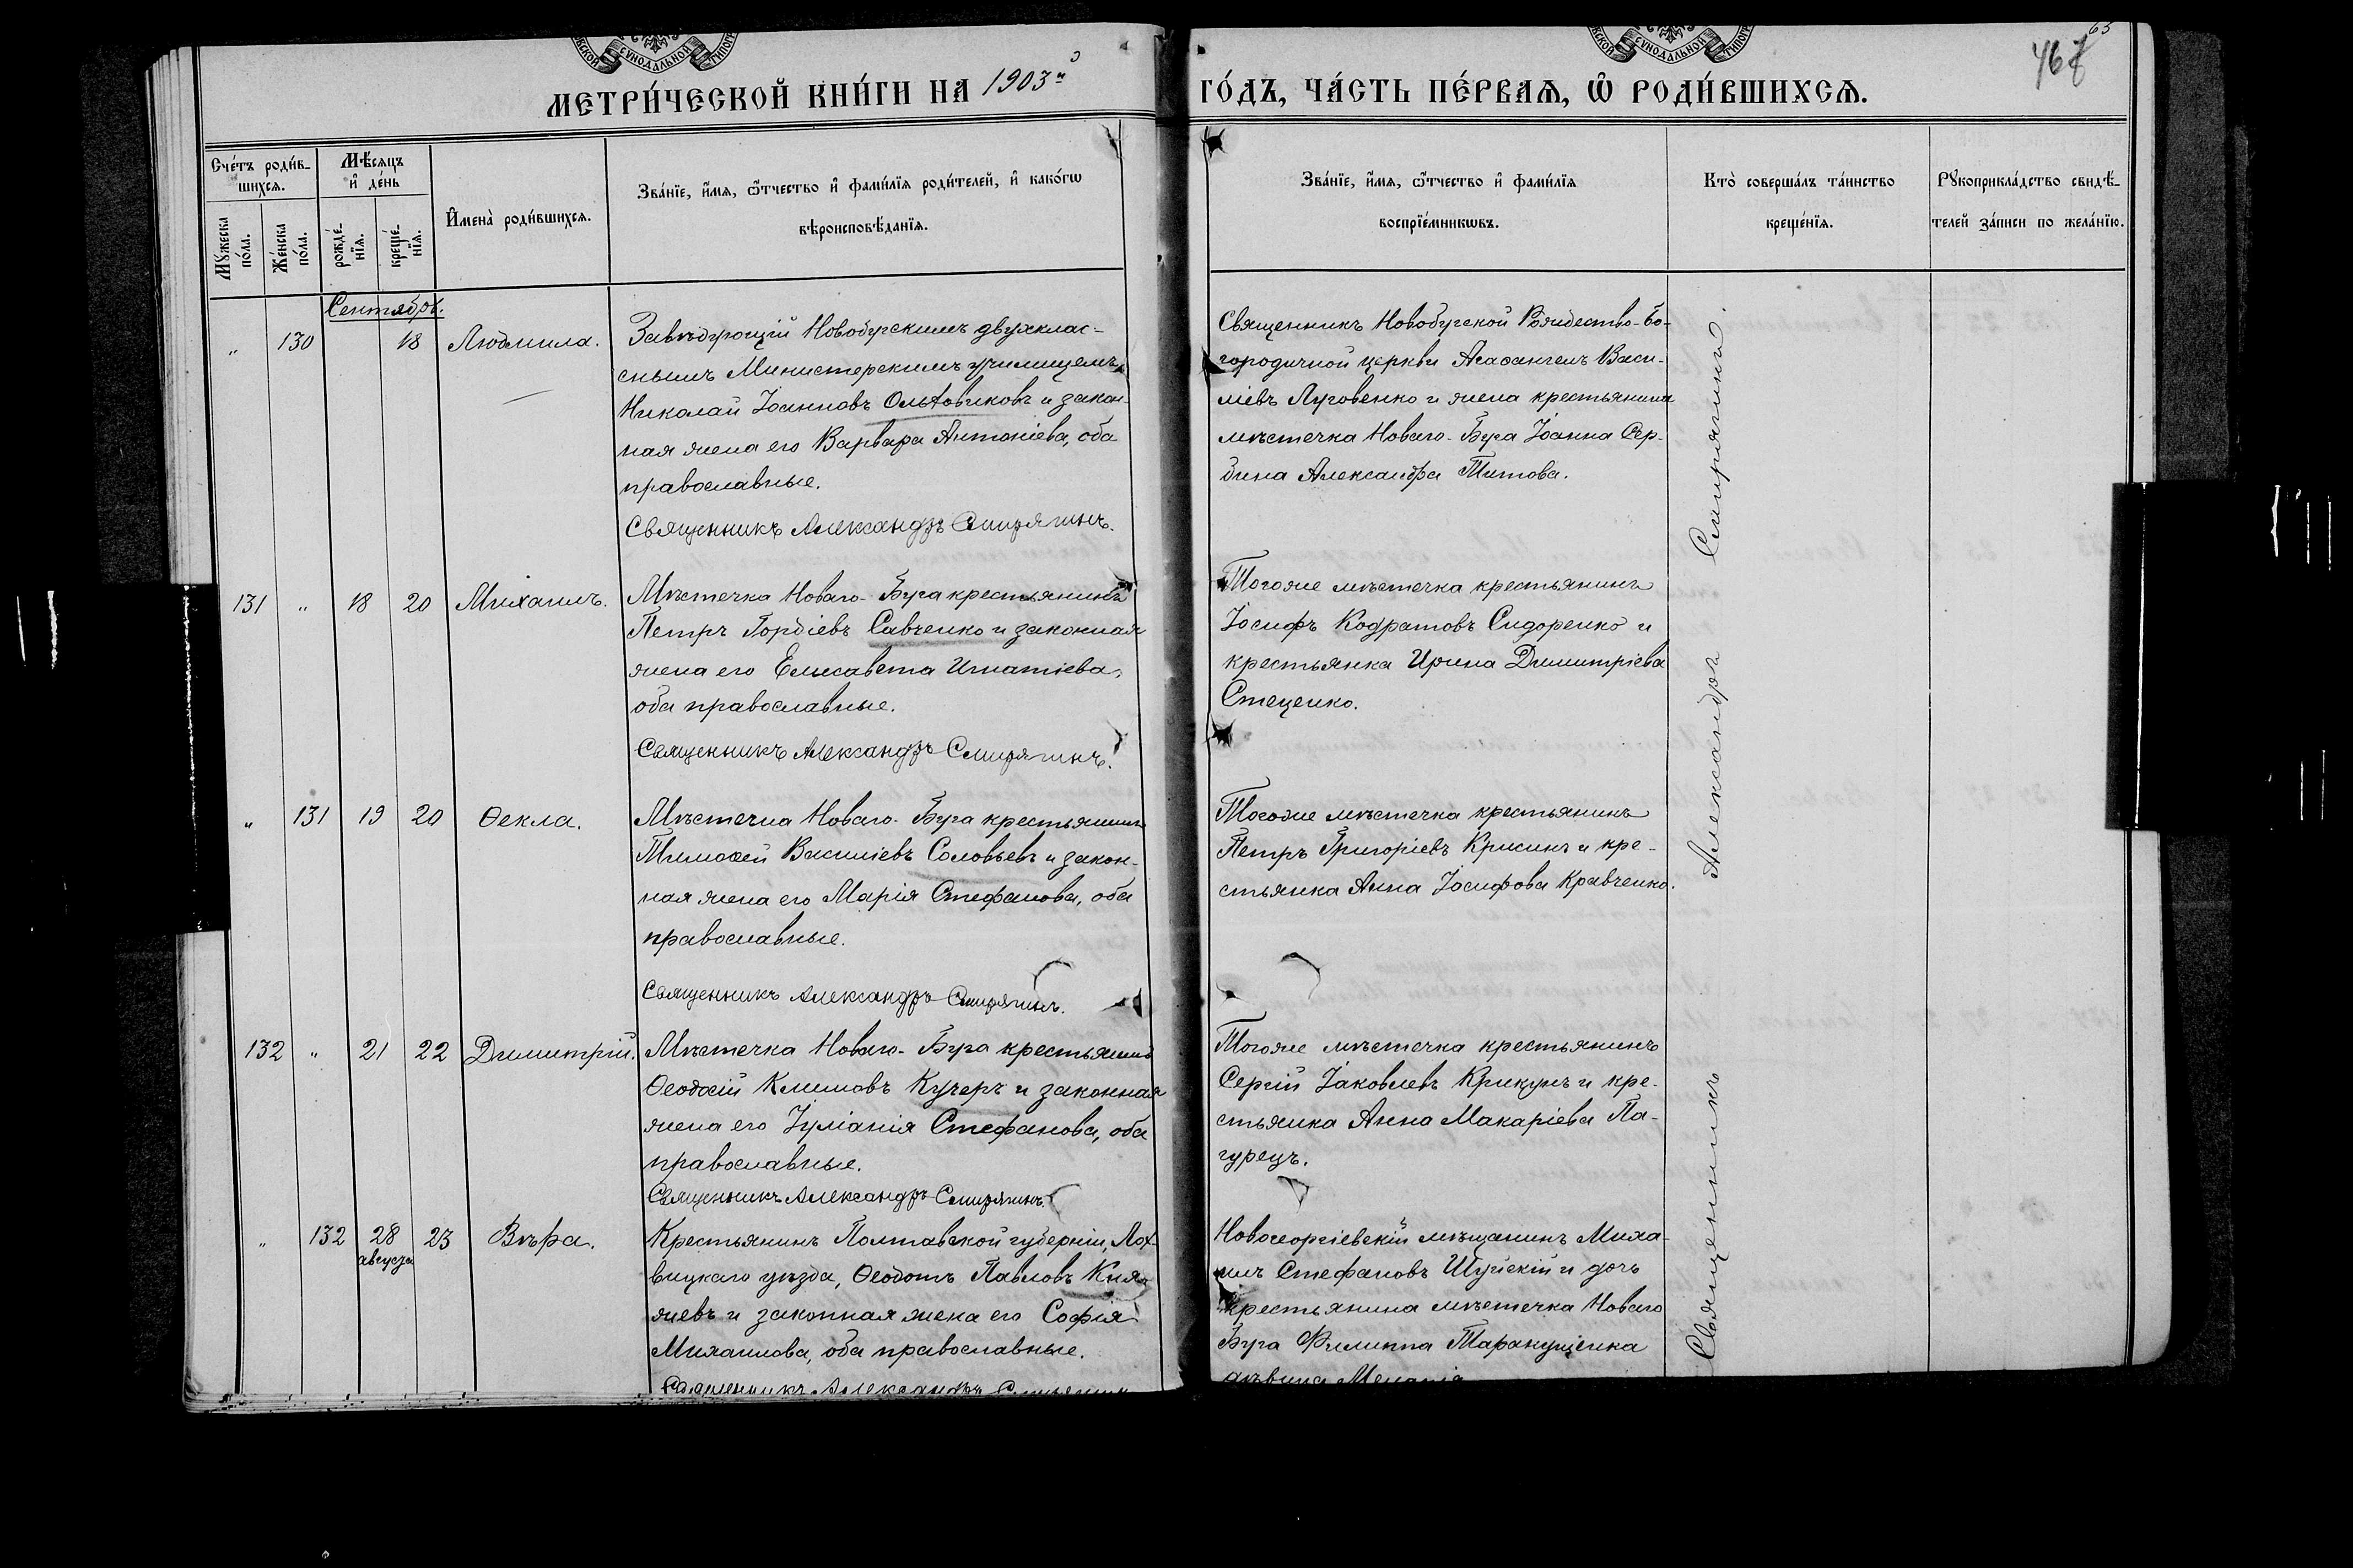 СѴНОДАЛЬНОЙ
СѴНОДАЛЬНОЙ
65
467
МЕТРИ́ЧЕСКОЙ КНИ́ГИ НА 1903й
ГО́ДЪ, ЧА́СТЬ ПЕ́РВАѦ, Ѡ҆ РОДИ́ВШИХСѦ.
Сче́тъ роди́в-
шихсѧ.
Мѣ́сѧцъ
и҆ де́нь
Мꙋ́жеска
по́ла.
Же́нска
по́ла.
рожде́-
нїѧ.
креще́-
нїѧ.
И҆мена̀ роди́вшихсѧ.
Зва́нїе, и҆́мѧ, ѻ҆́тчество и҆ фами́лїѧ роди́телей, и҆ како́гѡ
вѣроисповѣ́данїѧ.
Зва́нїе, и҆́мѧ, ѻ҆́тчество и҆ фами́лїѧ
воспрїе́мникѡвъ.
Кто̀ соверша́лъ та́инство
креще́нїѧ.
Рꙋкоприкла́дство свидѣ́-
телей за́писи по жела́нїю.
Сентябрь.
„ 130 18 Людмила.
Завѣдующій Новобугскимъ двухклас-
снымъ Министерскимъ училищемъ
Николай Іоанновъ Ольховиковъ и закон-
ная жена его Варвара Антоніева, оба
православные.
Священникъ Александръ Смирягинъ.
Священникъ Новобугской Рождество-Бо-
городичной церкви Агаѳангелъ Васи-
ліевъ Луговенко и жена крестьянина
мѣстечка Новаго-Буга Іоанна Сер-
бина Александра Титова.
131 „ 18 20 Михаилъ.
Мѣстечка Новаго-Буга крестьянинъ
Петръ Гордіевъ Савченко и законная
жена его Елисавета Игнатіева,
оба православные.
Священникъ Александръ Смирягинъ.
Тогоже мѣстечка крестьянинъ
Іосифъ Кодратовъ Сидоренко и
крестьянка Ирина Димитріева
Стеценко.
„ 131 19 20 Ѳекла.
Мѣстечка Новаго-Буга крестьянинъ
Тимоѳей Василіевъ Соловьевъ и закон-
ная жена его Марія Стефанова, оба
православные.
Священникъ Александръ Смирягинъ.
Тогоже мѣстечка крестьянинъ
Петръ Григоріевъ Крисинъ и кре-
стьянка Анна Іосифова Кравченко.
132 „ 21 22 Димитрій.
Мѣстечка Новаго-Буга крестьянинъ
Ѳеодосій Климовъ Кучеръ и законная
жена его Іуліанія Стефанова, оба
православные.
Священникъ Александръ Смирягинъ.
Тогоже мѣстечка крестьянинъ
Сергій Іаковлевъ Крикунъ и кре-
стьянка Анна Макаріева Па-
гурецъ.
„ 132 28 августа 23 Вѣра.
Крестьянинъ Полтавской губерніи, Лох-
вицкаго уѣзда, Ѳеодотъ Павловъ Кня-
жевъ и законная жена его Софія
Михаилова, оба православные.
Священникъ Александръ Смирягинъ
Новогеоргіевскій мѣщанинъ Миха-
илъ Стефановъ Шуйскій и дочь
крестьянина мѣстечка Новаго
Буга Филиппа Таранущенка
дѣвица Меланія
Священникъ Александръ Смирягинъ.